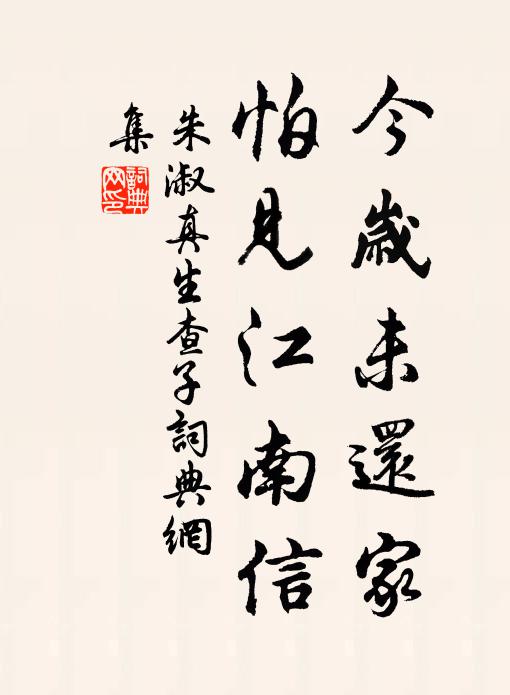 今歲未還家
怕見江南信
朱淑真生查子詞典網
集
詞典
网印